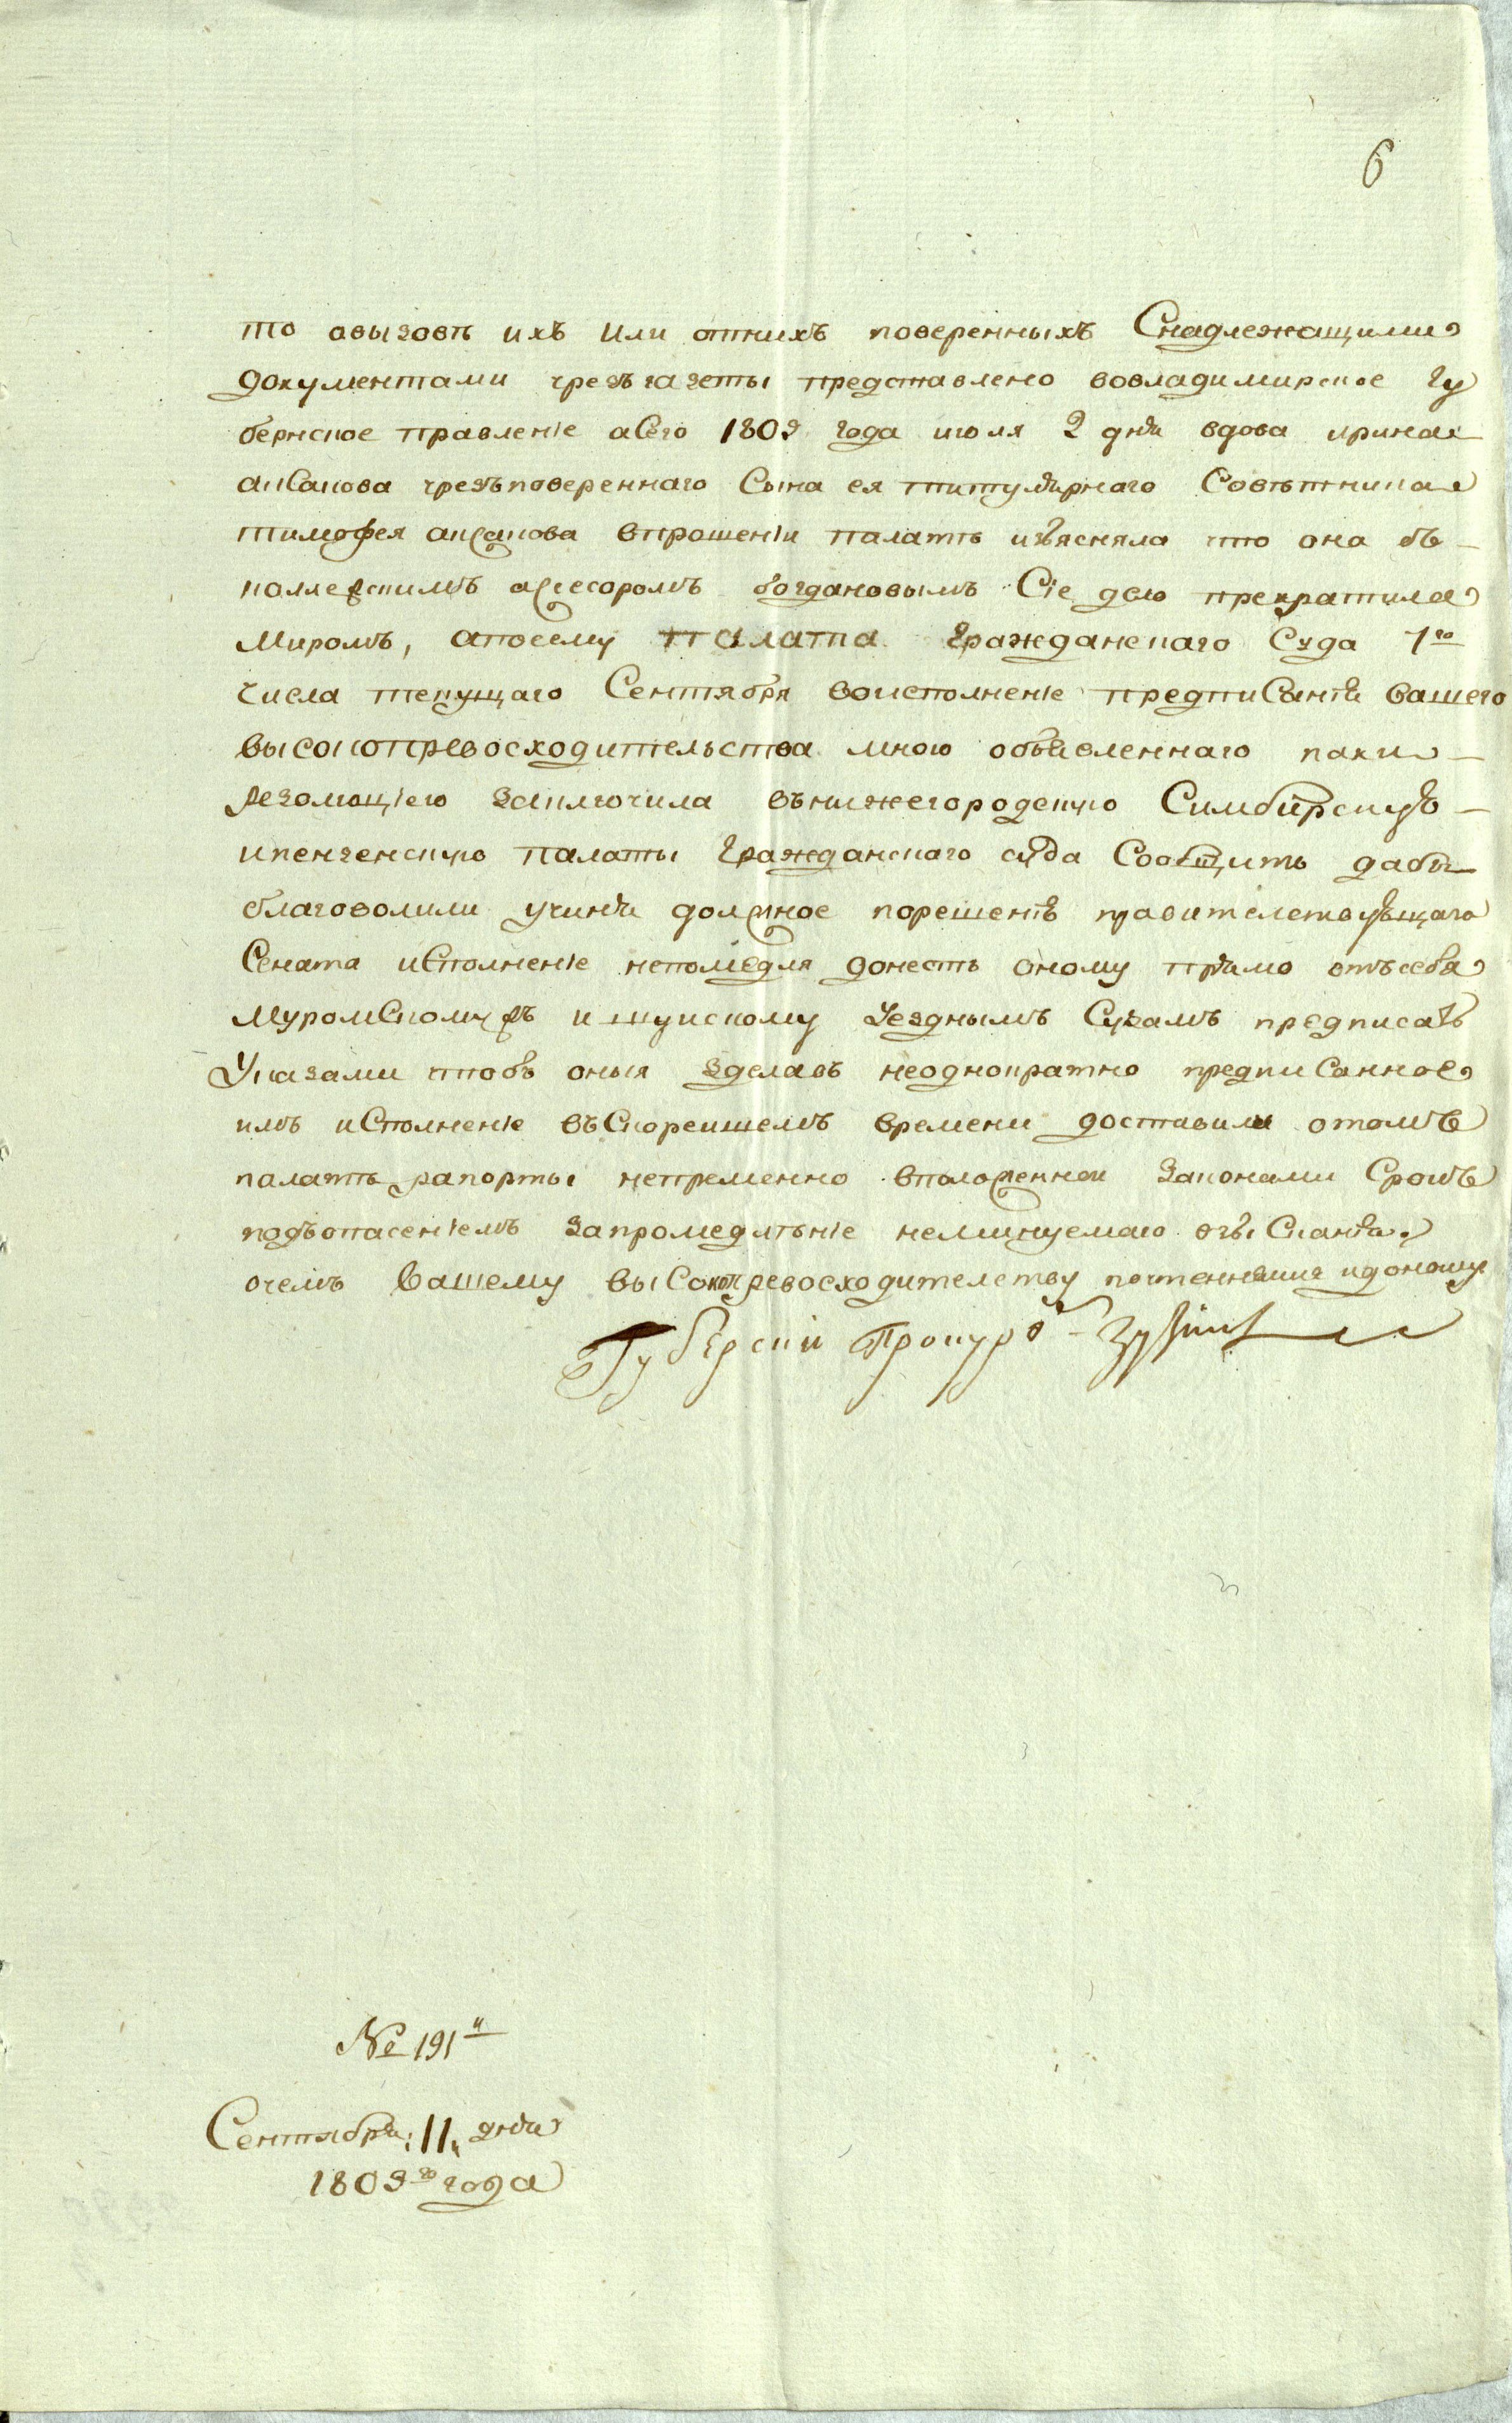 6
то овызове ихъ или отнихъ поверенныхъ Снадлежащими
документами чрезъ газеты представлено вовладимирское гу
бернское правленіе аСего 1809 года июля 2 дня вдова ирина
акСакова чрезъповереннаго Сына ея титулярнаго Советника
тимофея аксакова впрошеніи палатѣ изъясняла что она съ
коллежскимъ асесоромъ богдановымъ Сіе дело прекратила
миромъ, апосему палата гражданскаго Суда 1го
числа текущаго Сентября воисполненіе предпиСанія вашего
высокопревосходительства мною объявленнаго паки
резолюціею заключила внижегородскую Симбирскую
ипензенскую палаты гражданскаго суда Сообщить дабы
благоволили учиня должное порешенію правителствующаго
Сената иСполненіе непомедля донесть оному прямо отъсебя
муромСкому жъ и шуискому Уезднымъ Судамъ предписать
Указами чтобъ оныя зделавъ неоднократно предпиСанное
имъ иСполненіе въСкореишемъ времени доставили отомъ
палатѣ рапорты непременно вположеннои законами Срокъ
подъопасеніемъ запромедлѣніе неминуемаго взыСканія.
очемъ вашему выСокопревосходителству почтеннейше идоношу
Губернскій Прокуроръ
№ 191
Сентября 11 дня
1809го года